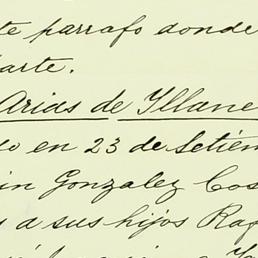 te parrafo donde
arte.
Arias de Yllane
do en 23 de Setiem
in Gonzalez Cos
a sus hijos Raf